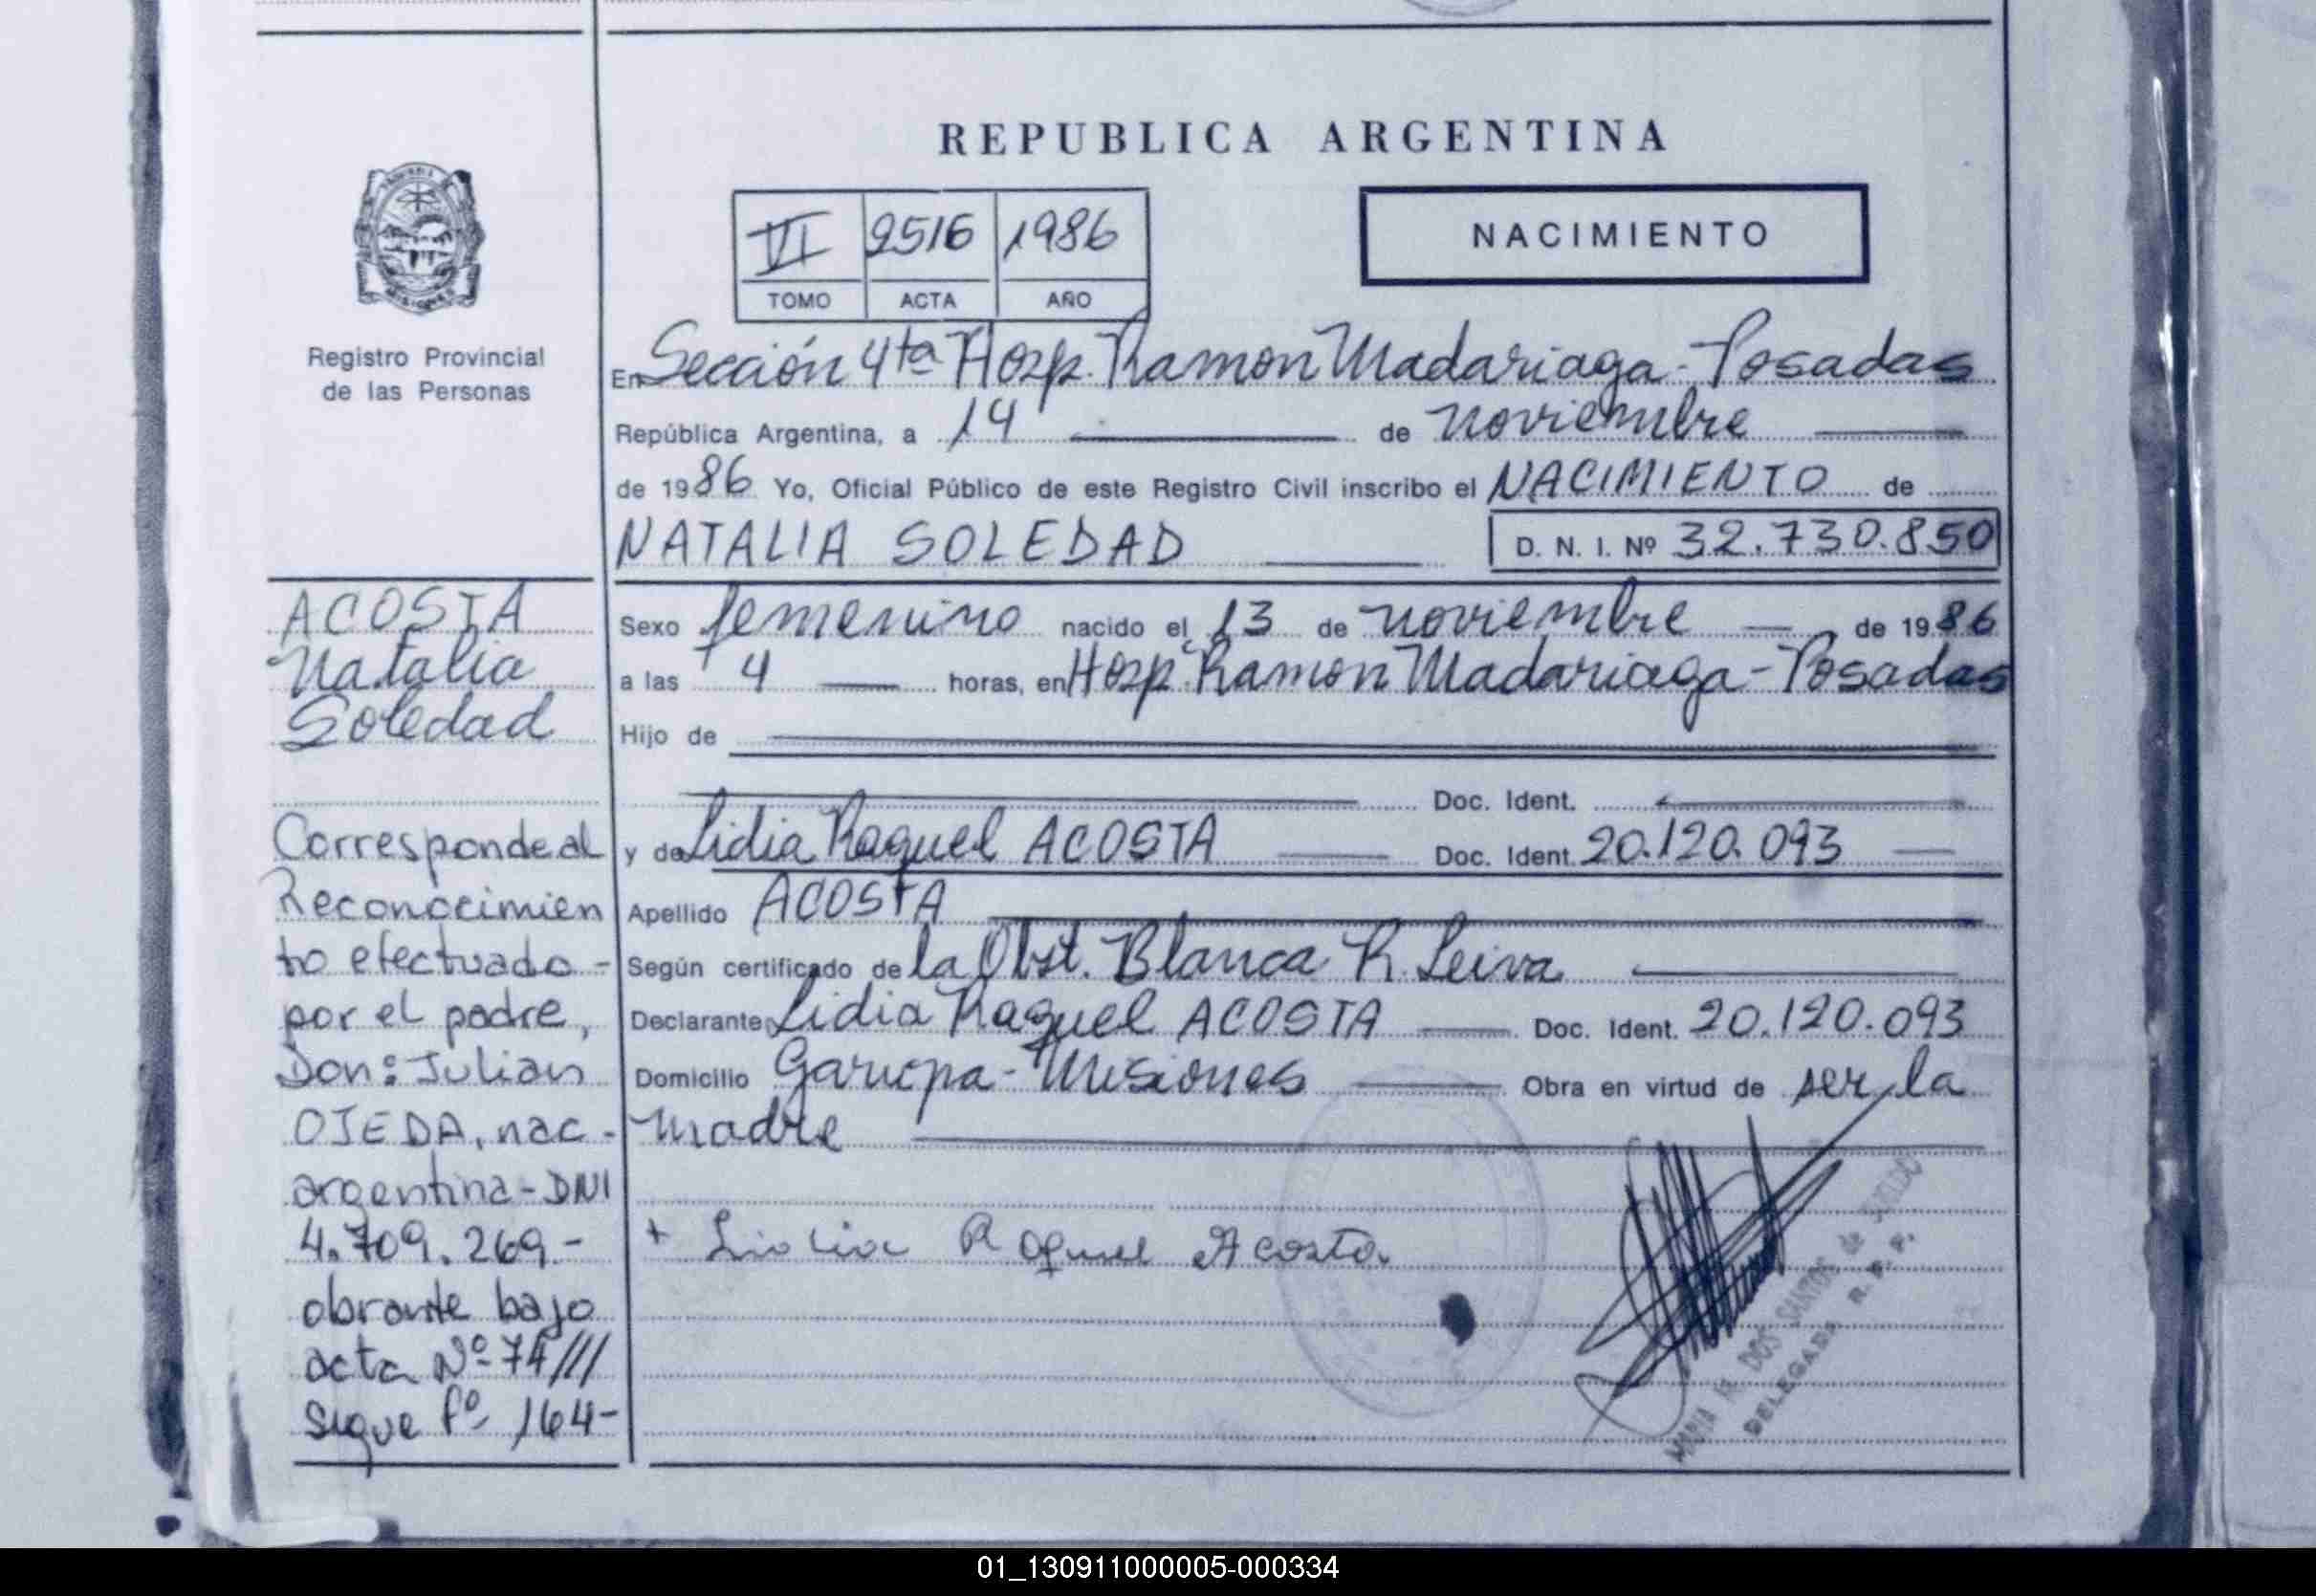 REPUBLICA ARGENTINA
VI 2516 1986
TOMO ACTA AÑO
NACIMIENTO
Registro Provincial
de las Personas
En Sección 4ta Hosp. Ramon Madariaga - Posadas
República Argentina, a 14 de noviembre
de 1986 Yo, Oficial Público de este Registro Civil inscribo el NACIMIENTO de
NATALIA SOLEDAD D. N. I. Nº 32.730.850
Sexo femenino nacido el 13 de noviembre — de 1986
a las 4 — horas, en Hosp. Ramon Madariaga - Posadas
Hijo de
Doc. Ident.
y de Lidia Raquel ACOSTA — Doc. Ident. 20.120.093 —
Apellido ACOSTA
Según certificado de la Obst. Blanca R. Leiva
Declarante Lidia Raquel ACOSTA — Doc. Ident. 20.120.093
Domicilio Garupa - Misiones — Obra en virtud de ser la
madre
+ Lidia Raquel Acosta
DOS SANTOS de
DELEGADA R. P. P.
ACOSTA
Natalia
Soledad
Corresponde al
Reconocimien
to efectuado -
por el padre,
Don: Julian
OJEDA, nac -
argentina - DNI
4.709.269.-
obrante bajo
acta Nº 74/III
sigue fº 164-
01_130911000005-000334